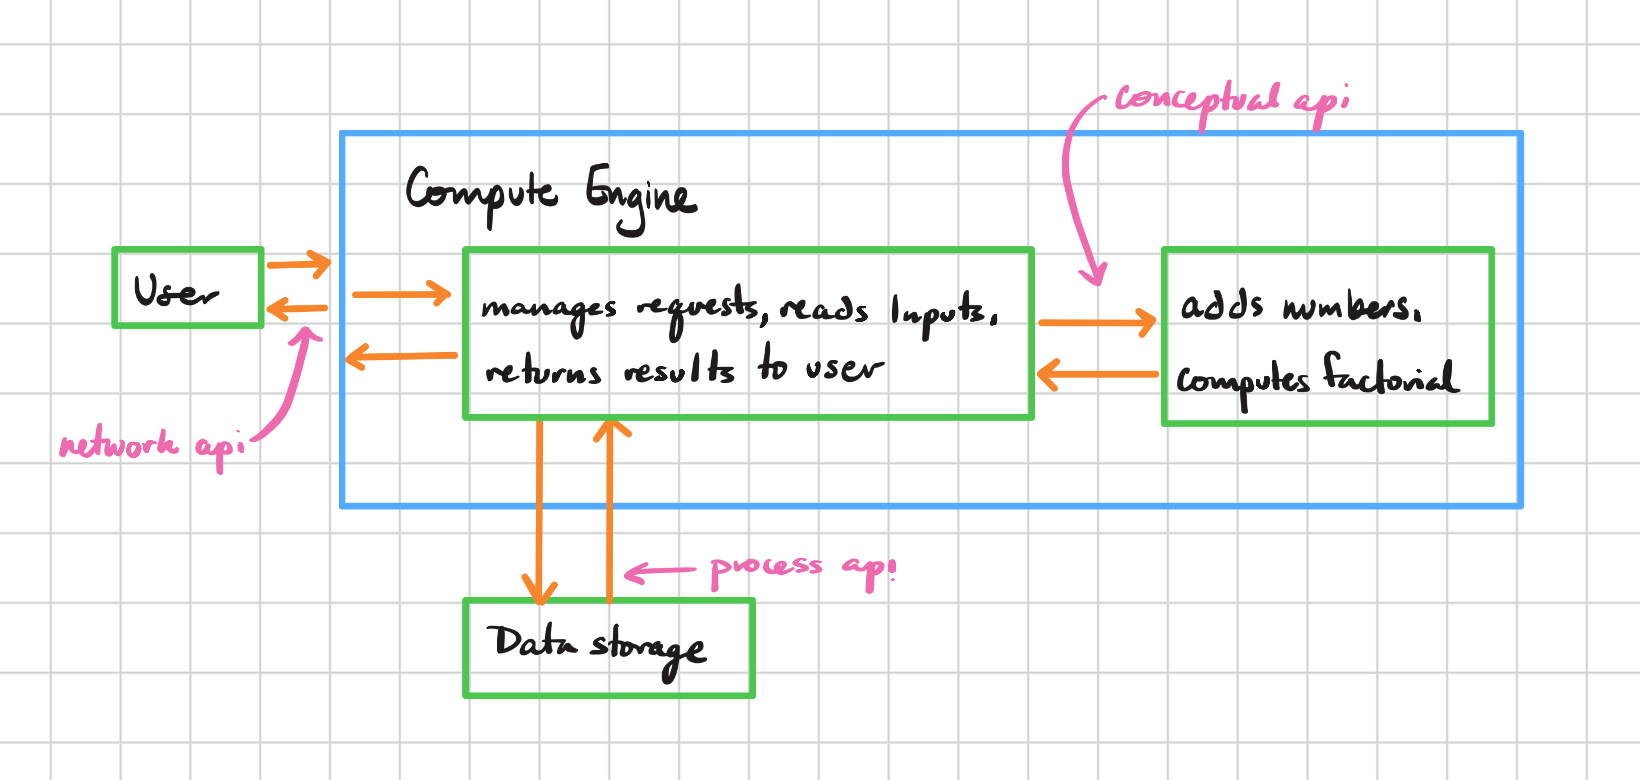 conceptual api
Compute Engine
User
manages requests, reads Inputs,
returns results to user
adds numbers.
computes factorial
network api
process api
Data storage